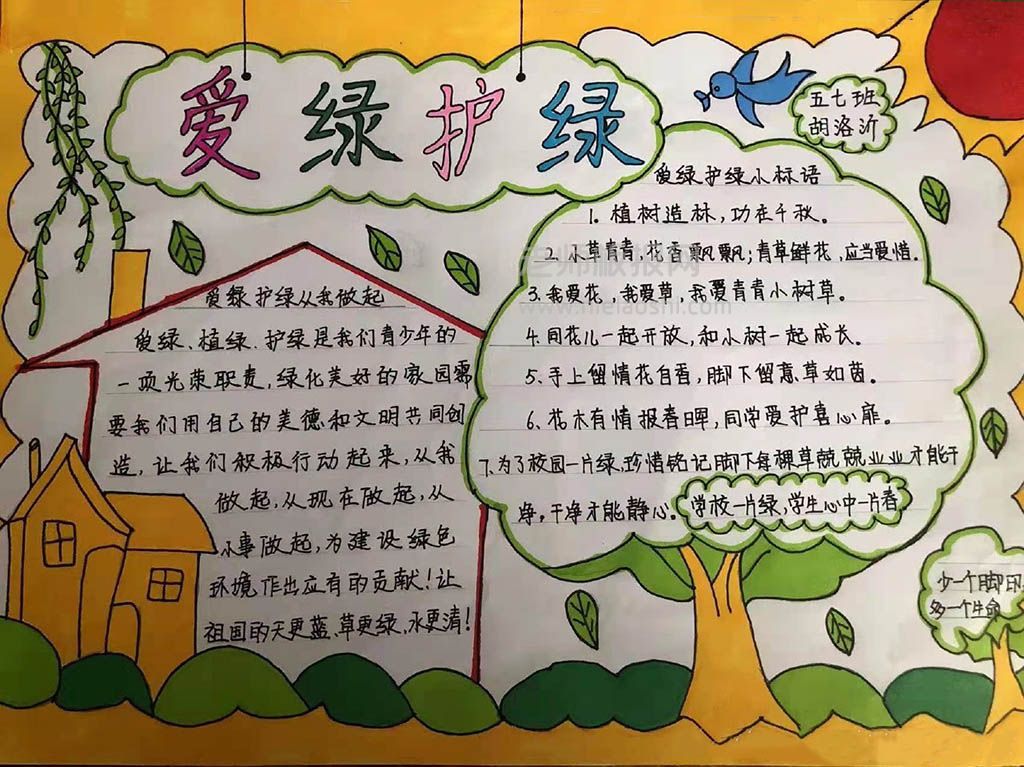 爱绿护绿
五七班
胡洛沂
爱绿护绿从我做起
爱绿、植绿、护绿是我们青少年的
一项光荣职责,绿化美好的家园需
要我们用自己的美德和文明共同创
造,让我们积极行动起来,从我
做起,从现在做起,从
小事做起,为建设绿色
环境作出应有的贡献!让
祖国的天更蓝、草更绿,水更清!
爱绿护绿小标语
1. 植树造林,功在千秋。
2. 小草青青,花香飘飘;青草鲜花,应当爱惜。
3. 我爱花,我爱草,我爱青青小树草。
4. 同花儿一起开放,和小树一起成长。
5. 手上留情花自香,脚下留意草如茵。
6. 花木有情报春晖,同学爱护喜心扉。
7. 为了校园一片绿,珍惜铭记脚下每棵草兢兢业业才能干
净,干净才能静心。
学校一片绿,学生心中一片春。
少一个脚印
多一个生命
www.meilaoshi.com